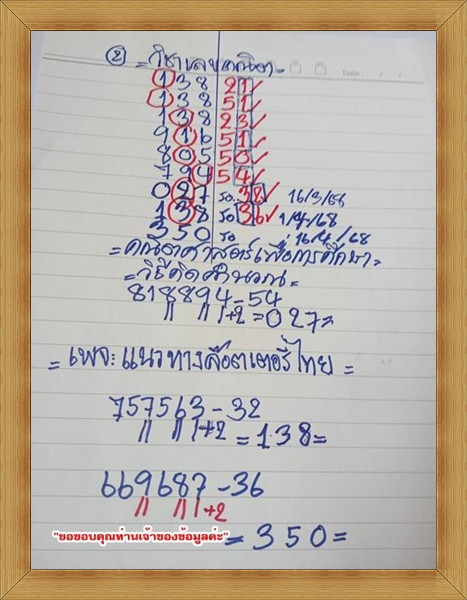 ② = วิชาเลขคณิต =
138 21 ✓
138 51 ✓
138 23 ✓
916 51 ✓
805 50 ✓
794 54 ✓
027 รอ 36 ✓ 16/3/68
138 รอ 36 ✓ 1/4/68
350 รอ 16/4/68
= คณิตศาสตร์เพื่อการศึกษา =
= วิธีคิดคำนวณ =
818894-54
+2 = 027 =
= เพจ: แนวทางล๊อตเตอรี่ไทย =
757563-32
+2 = 138 =
669687-36
+2
"ขอขอบคุณท่านเจ้าของข้อมูลค่ะ" = 350 =